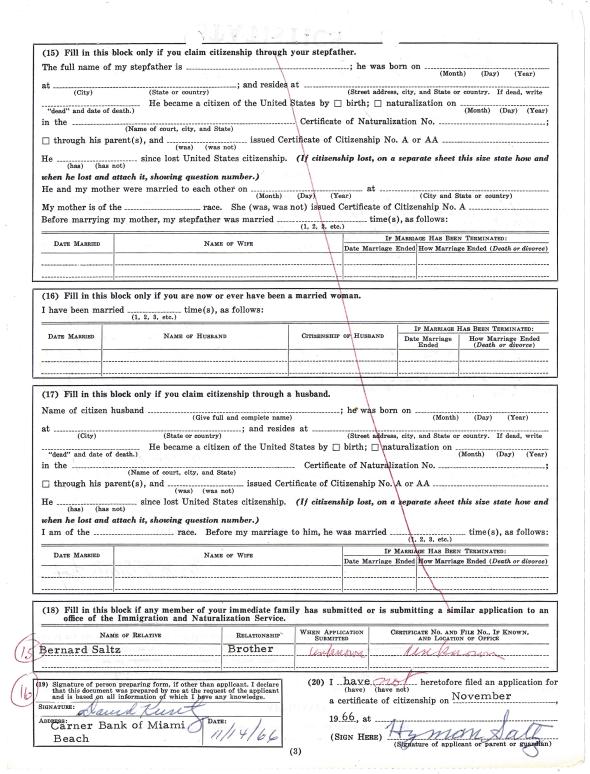 (15) Fill in this block only if you claim citizenship through your stepfather.
The full name of my stepfather is ; he was born on
(Month) (Day) (Year)
at ; and resides at
(City) (State or country) (Street address, city, and State or country. If dead, write
"dead" and date of death.) He became a citizen of the United States by ☐ birth; ☐ naturalization on
(Month) (Day) (Year)
in the Certificate of Naturalization No. ;
(Name of court, city, and State)
☐ through his parent(s), and issued Certificate of Citizenship No. A or AA
(was) (was not)
He since lost United States citizenship. (If citizenship lost, on a separate sheet this size state how and
(has) (has not)
when he lost and attach it, showing question number.)
He and my mother were married to each other on at
(Month) (Day) (Year) (City and State or country)
My mother is of the race. She (was, was not) issued Certificate of Citizenship No. A
Before marrying my mother, my stepfather was married time(s), as follows:
(1, 2, 3, etc.)
DATE MARRIED NAME OF WIFE IF MARRIAGE HAS BEEN TERMINATED:
Date Marriage Ended How Marriage Ended (Death or divorce)
(16) Fill in this block only if you are now or ever have been a married woman.
I have been married time(s), as follows:
(1, 2, 3, etc.)
DATE MARRIED NAME OF HUSBAND CITIZENSHIP OF HUSBAND IF MARRIAGE HAS BEEN TERMINATED:
Date Marriage Ended How Marriage Ended (Death or divorce)
(17) Fill in this block only if you claim citizenship through a husband.
Name of citizen husband ; he was born on
(Give full and complete name) (Month) (Day) (Year)
at ; and resides at
(City) (State or country) (Street address, city, and State or country. If dead, write
"dead" and date of death.) He became a citizen of the United States by ☐ birth; ☐ naturalization on
(Month) (Day) (Year)
in the Certificate of Naturalization No. ;
(Name of court, city, and State)
☐ through his parent(s), and issued Certificate of Citizenship No. A or AA
(was) (was not)
He since lost United States citizenship. (If citizenship lost, on a separate sheet this size state how and
(has) (has not)
when he lost and attach it, showing question number.)
I am of the race. Before my marriage to him, he was married time(s), as follows:
(1, 2, 3, etc.)
DATE MARRIED NAME OF WIFE IF MARRIAGE HAS BEEN TERMINATED:
Date Marriage Ended How Marriage Ended (Death or divorce)
(18) Fill in this block if any member of your immediate family has submitted or is submitting a similar application to an
office of the Immigration and Naturalization Service.
NAME OF RELATIVE RELATIONSHIP WHEN APPLICATION SUBMITTED CERTIFICATE NO. AND FILE NO., IF KNOWN, AND LOCATION OF OFFICE
15 Bernard Saltz Brother unknown Unknown
16
(19) Signature of person preparing form, if other than applicant. I declare
that this document was prepared by me at the request of the applicant
and is based on all information of which I have any knowledge.
SIGNATURE: David
ADDRESS: Carner Bank of Miami Beach DATE: 11/14/66
(20) I have not heretofore filed an application for
(have) (have not)
a certificate of citizenship on November,
1966, at
(SIGN HERE) Hyman Saltz
(Signature of applicant or parent or guardian)
(3)